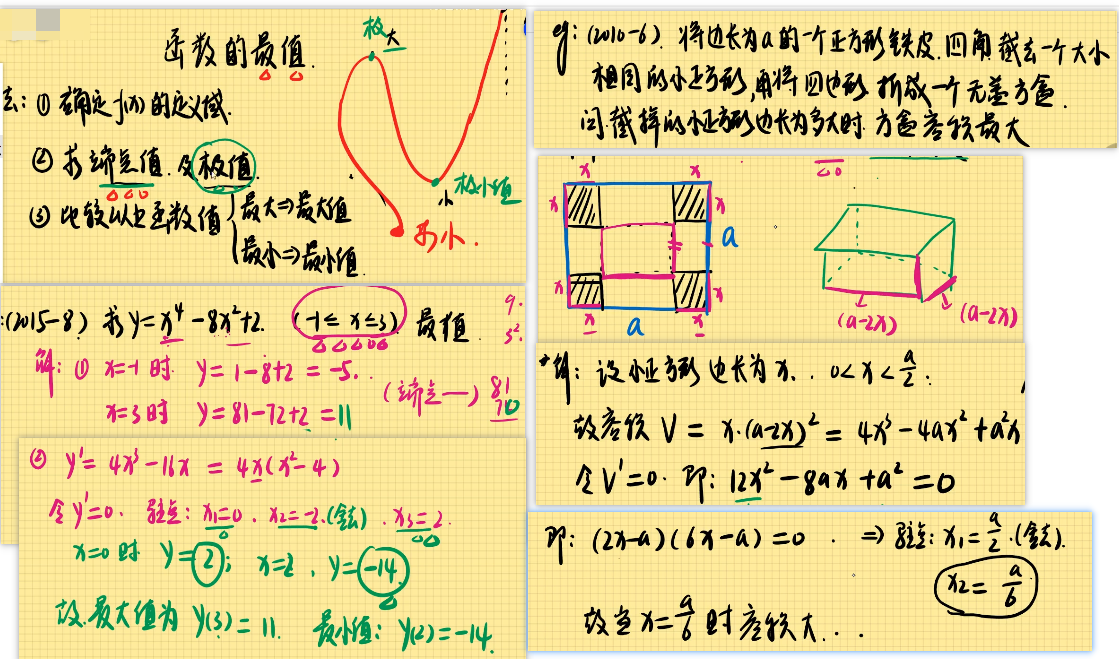 函数的最值.
极大
极小值
小
最小.
法: ① 确定f(x)的定义域.
② 求端点值.及极值
③ 比较以上函数值 { 最大⇒最大值
最小⇒最小值.
:(2015-8) 求y=x⁴-8x²+2. (-1≤x≤3) 最值
9.
3².
解: ① x=-1时. y=1-8+2=-5.
(端点一)
81
x=3时 y=81-72+2=11
② y'=4x³-16x=4x(x²-4)
令y'=0. 驻点: x₁=0. x₂=-2.(舍去). x₃=2.
x=0时 y=2; x=2, y=-14
故.最大值为 y(3)=11. 最小值: y(2)=-14.
eg: (2010-6). 将边长为a的一个正方形铁皮.四角截去一个大小
相同的小正方形,再将四边形折成一个无盖方盒.
问.截掉的小正方形边长为多大时.方盒容积最大
x x
x x
a
x x
x a x
(a-2x) (a-2x)
解: 设小正方形边长为x. 0<x<a/2.
故容积 V=x·(a-2x)²=4x³-4ax²+a²x
令V'=0. 即: 12x²-8ax+a²=0
即: (2x-a)(6x-a)=0. ⇒驻点: x₁=a/2.(舍去).
x₂=a/6
故当x=a/6时容积大...